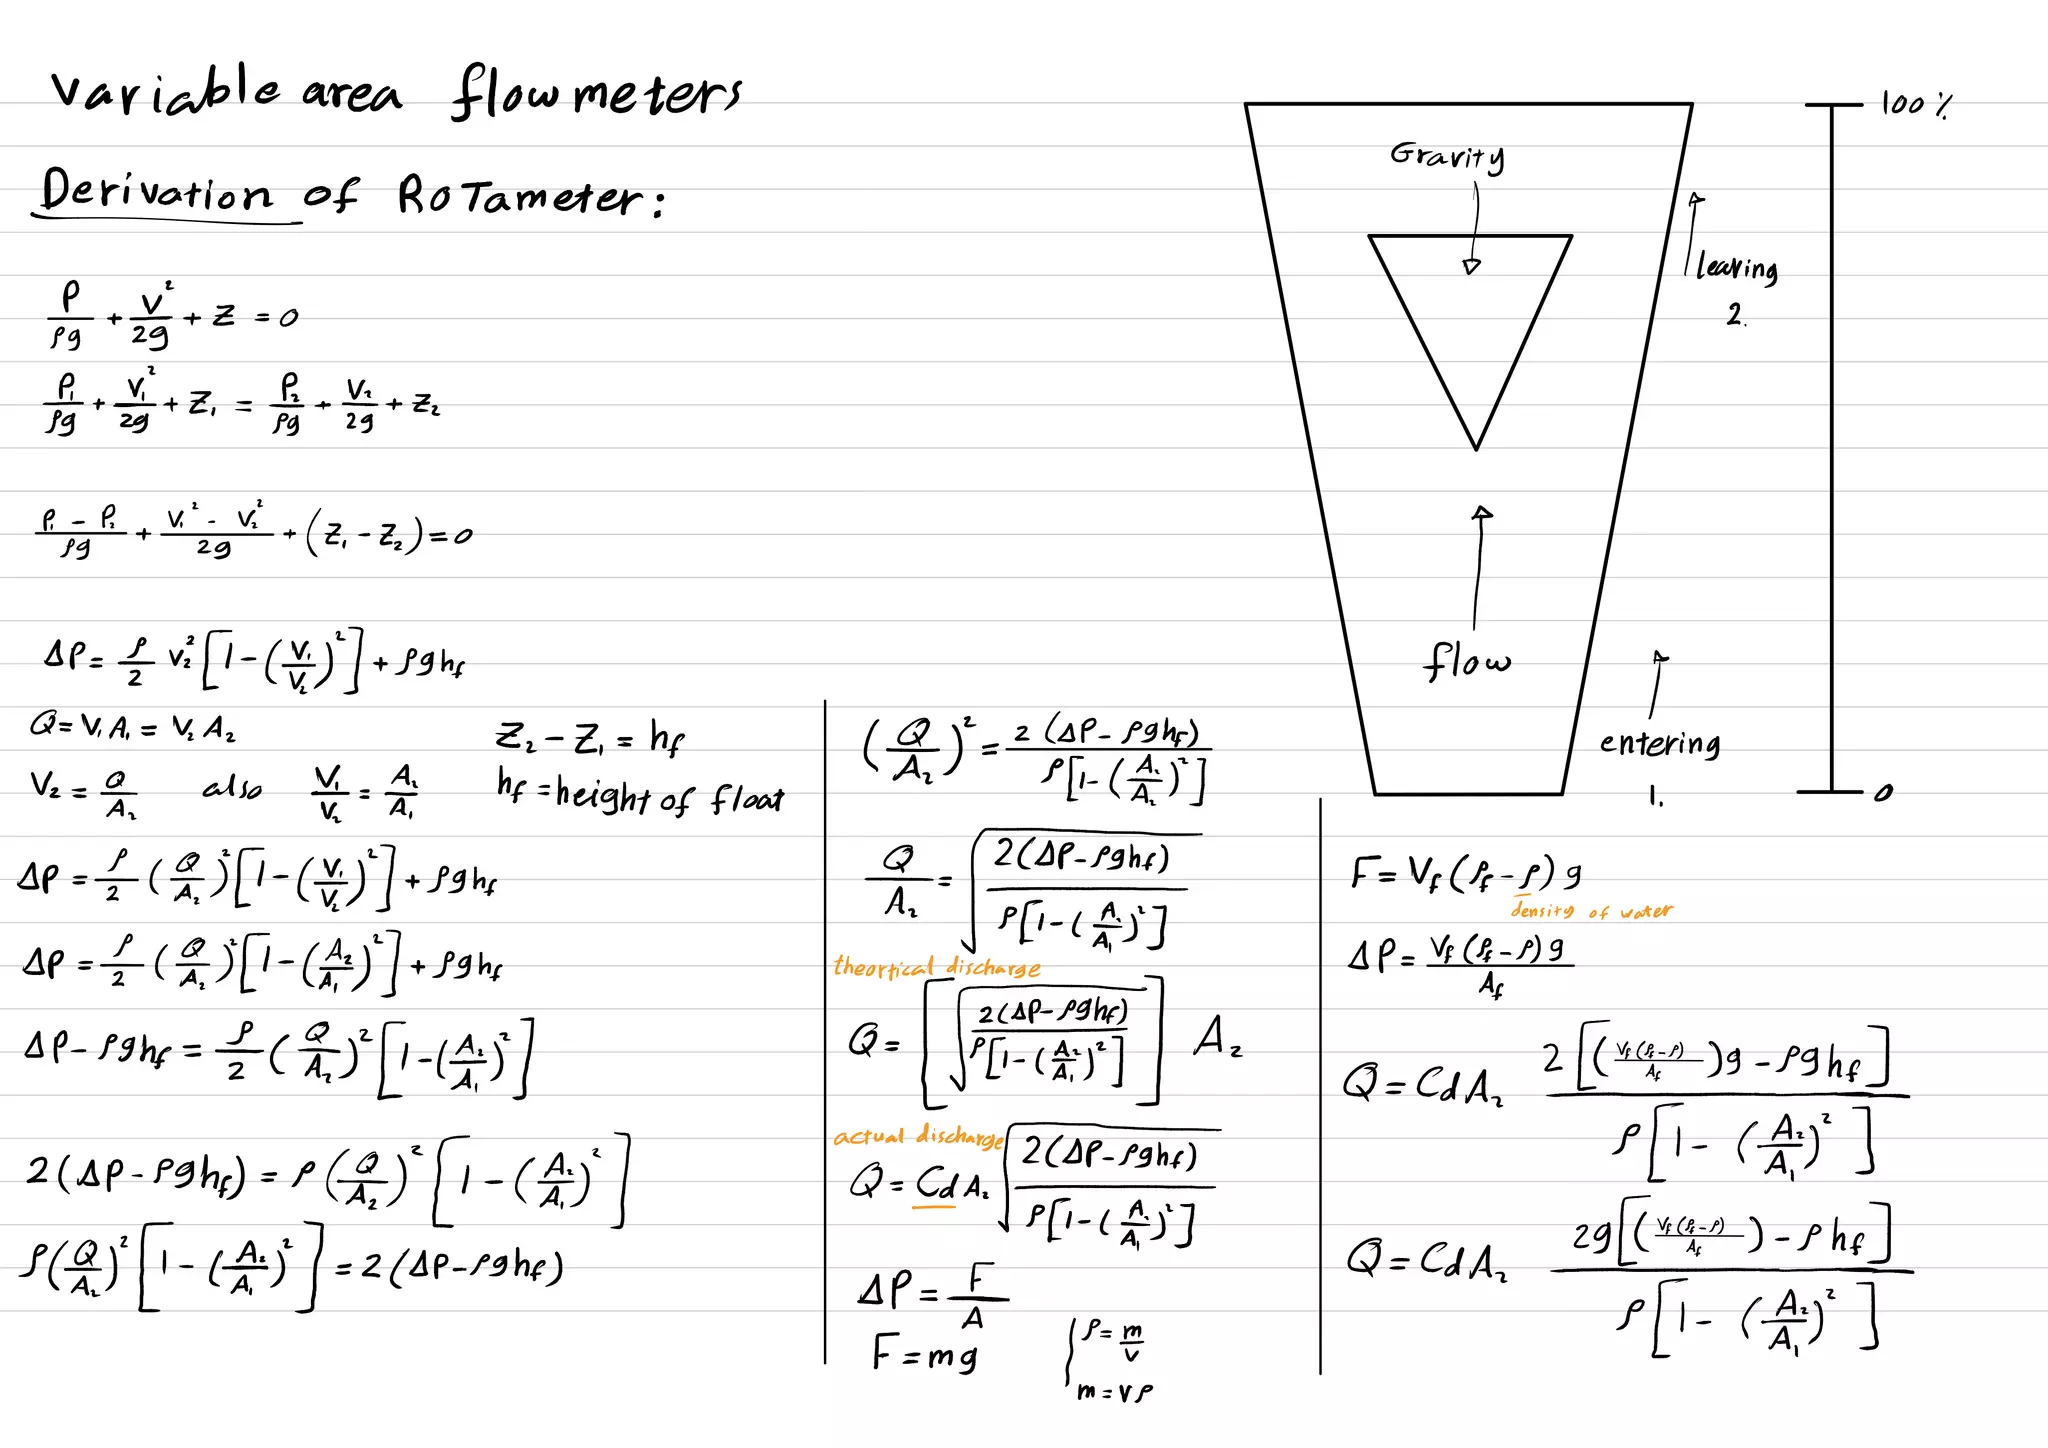 variable area flowmeters
Derivation of RoTameter:
P/ρg + V²/2g + Z = 0
P₁/ρg + V₁²/2g + Z₁ = P₂/ρg + V₂/2g + Z₂
P₁ - P₂/ρg + V₁² - V₂²/2g + (Z₁ - Z₂) = 0
ΔP = ρ/2 V₂² [1 - (V₁/V₂)²] + ρghf
Q = V₁A₁ = V₂A₂
Z₂ - Z₁ = hf
V₂ = Q/A₂ also V₁/V₂ = A₂/A₁
hf = height of float
ΔP = ρ/2 (Q/A₂)² [1 - (V₁/V₂)²] + ρghf
ΔP = ρ/2 (Q/A₂)² [1 - (A₂/A₁)²] + ρghf
ΔP - ρghf = ρ/2 (Q/A₂)² [1 - (A₂/A₁)²]
2(ΔP - ρghf) = ρ(Q/A₂)² [1 - (A₂/A₁)²]
ρ(Q/A₂)² [1 - (A₂/A₁)²] = 2(ΔP - ρghf)
(Q/A₂)² = 2(ΔP - ρghf)/ρ[1 - (A₂/A₂)²]
Q/A₂ = √(2(ΔP - ρghf)/ρ[1 - (A₂/A₁)²])
theortical discharge
Q = [√(2(ΔP - ρghf)/ρ[1 - (A₂/A₁)²])] A₂
actual discharge
Q = Cd A₂ √(2(ΔP - ρghf)/ρ[1 - (A₂/A₁)²])
ΔP = F/A
F = mg
ρ = m/v
m = vρ
Gravity
flow
leaving
2.
entering
1.
100%
0
F = Vf (ρf - ρ) g
density of water
ΔP = Vf (ρf - ρ) g/Af
Q = CdA₂ 2[(Vf (ρf - ρ)/Af)g - ρghf]/ρ[1 - (A₂/A₁)²]
Q = CdA₂ 2g[(Vf (ρf - ρ)/Af) - ρhf]/ρ[1 - (A₂/A₁)²]